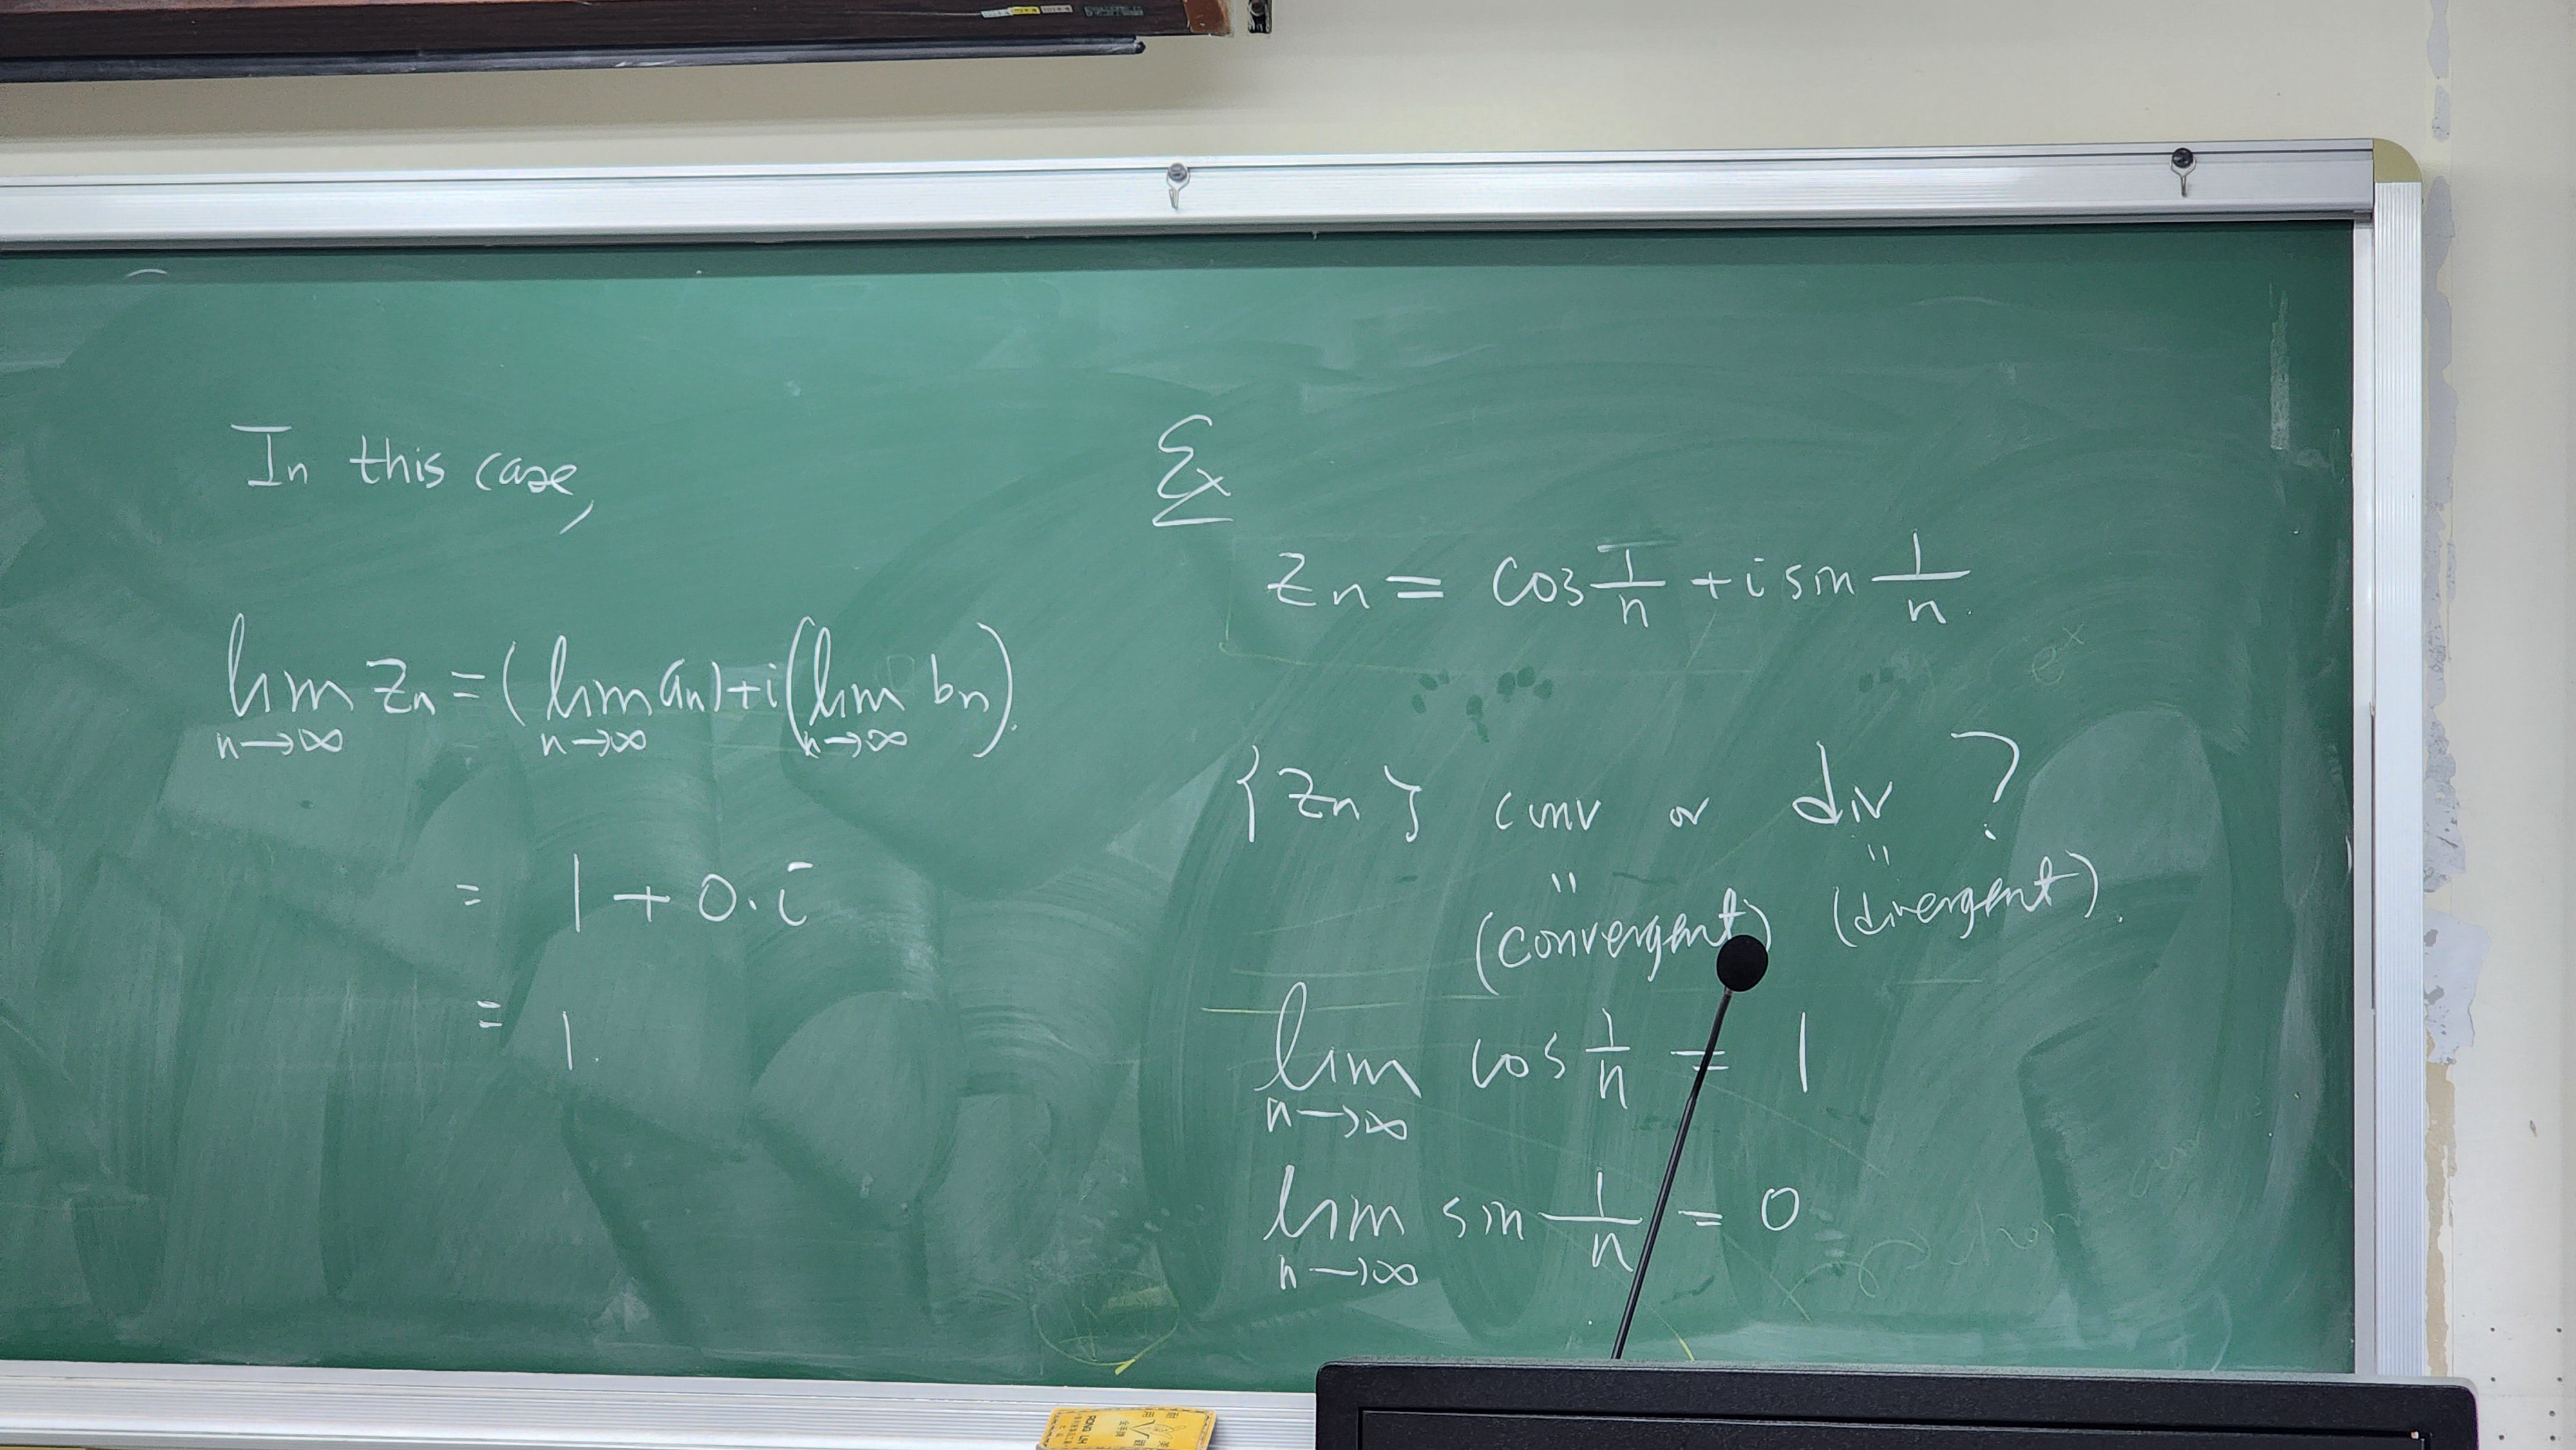 In this case,
lim n→∞ Zn = (lim n→∞ an) + i(lim n→∞ bn).
= 1 + 0·i
= 1.
Ex
Zn = cos 1/n + i sin 1/n.
{Zn} conv or div ?
" "
(convergent) (divergent).
lim n→∞ cos 1/n = 1
lim n→∞ sin 1/n = 0